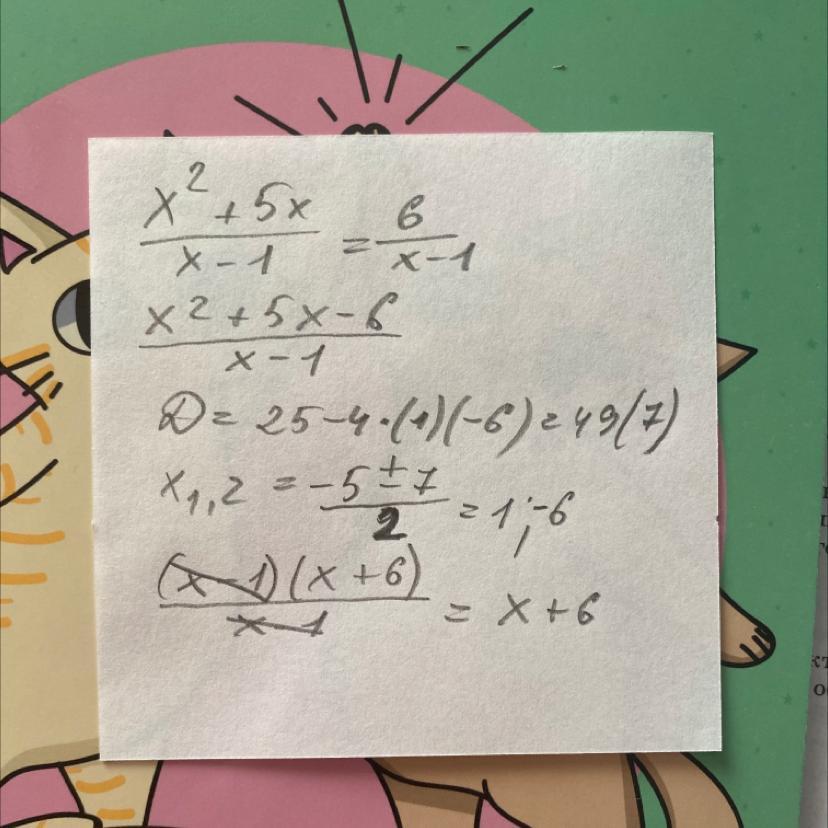 x² + 5x / x - 1 = 6 / x - 1
x² + 5x - 6 / x - 1
D = 25 - 4 · (1)(-6) = 49(7)
x₁,₂ = -5 ± 7 / 2 = 1; -6
(x - 1)(x + 6) / x - 1 = x + 6